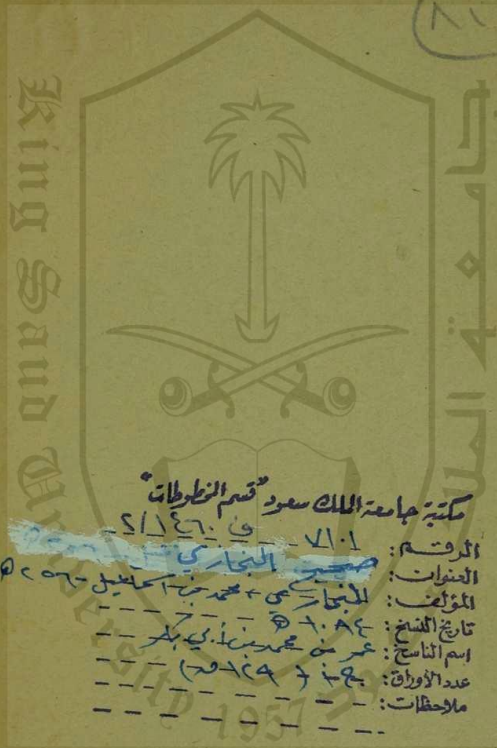 (٨١
King Saud University
مكتبة جامعة الملك سعود "قسم المخطوطات"
الرقم: ٧١٠١ ف ١٤٦٠/٢
العنوان: صحيح البخاري
المؤلف: البخاري، محمد بن إسماعيل - ٢٥٦هـ
تاريخ النسخ: ١٠٨٤هـ
اسم الناسخ: عمر بن محمد بن أبي بكر
عدد الأوراق:
ملاحظات:
1957